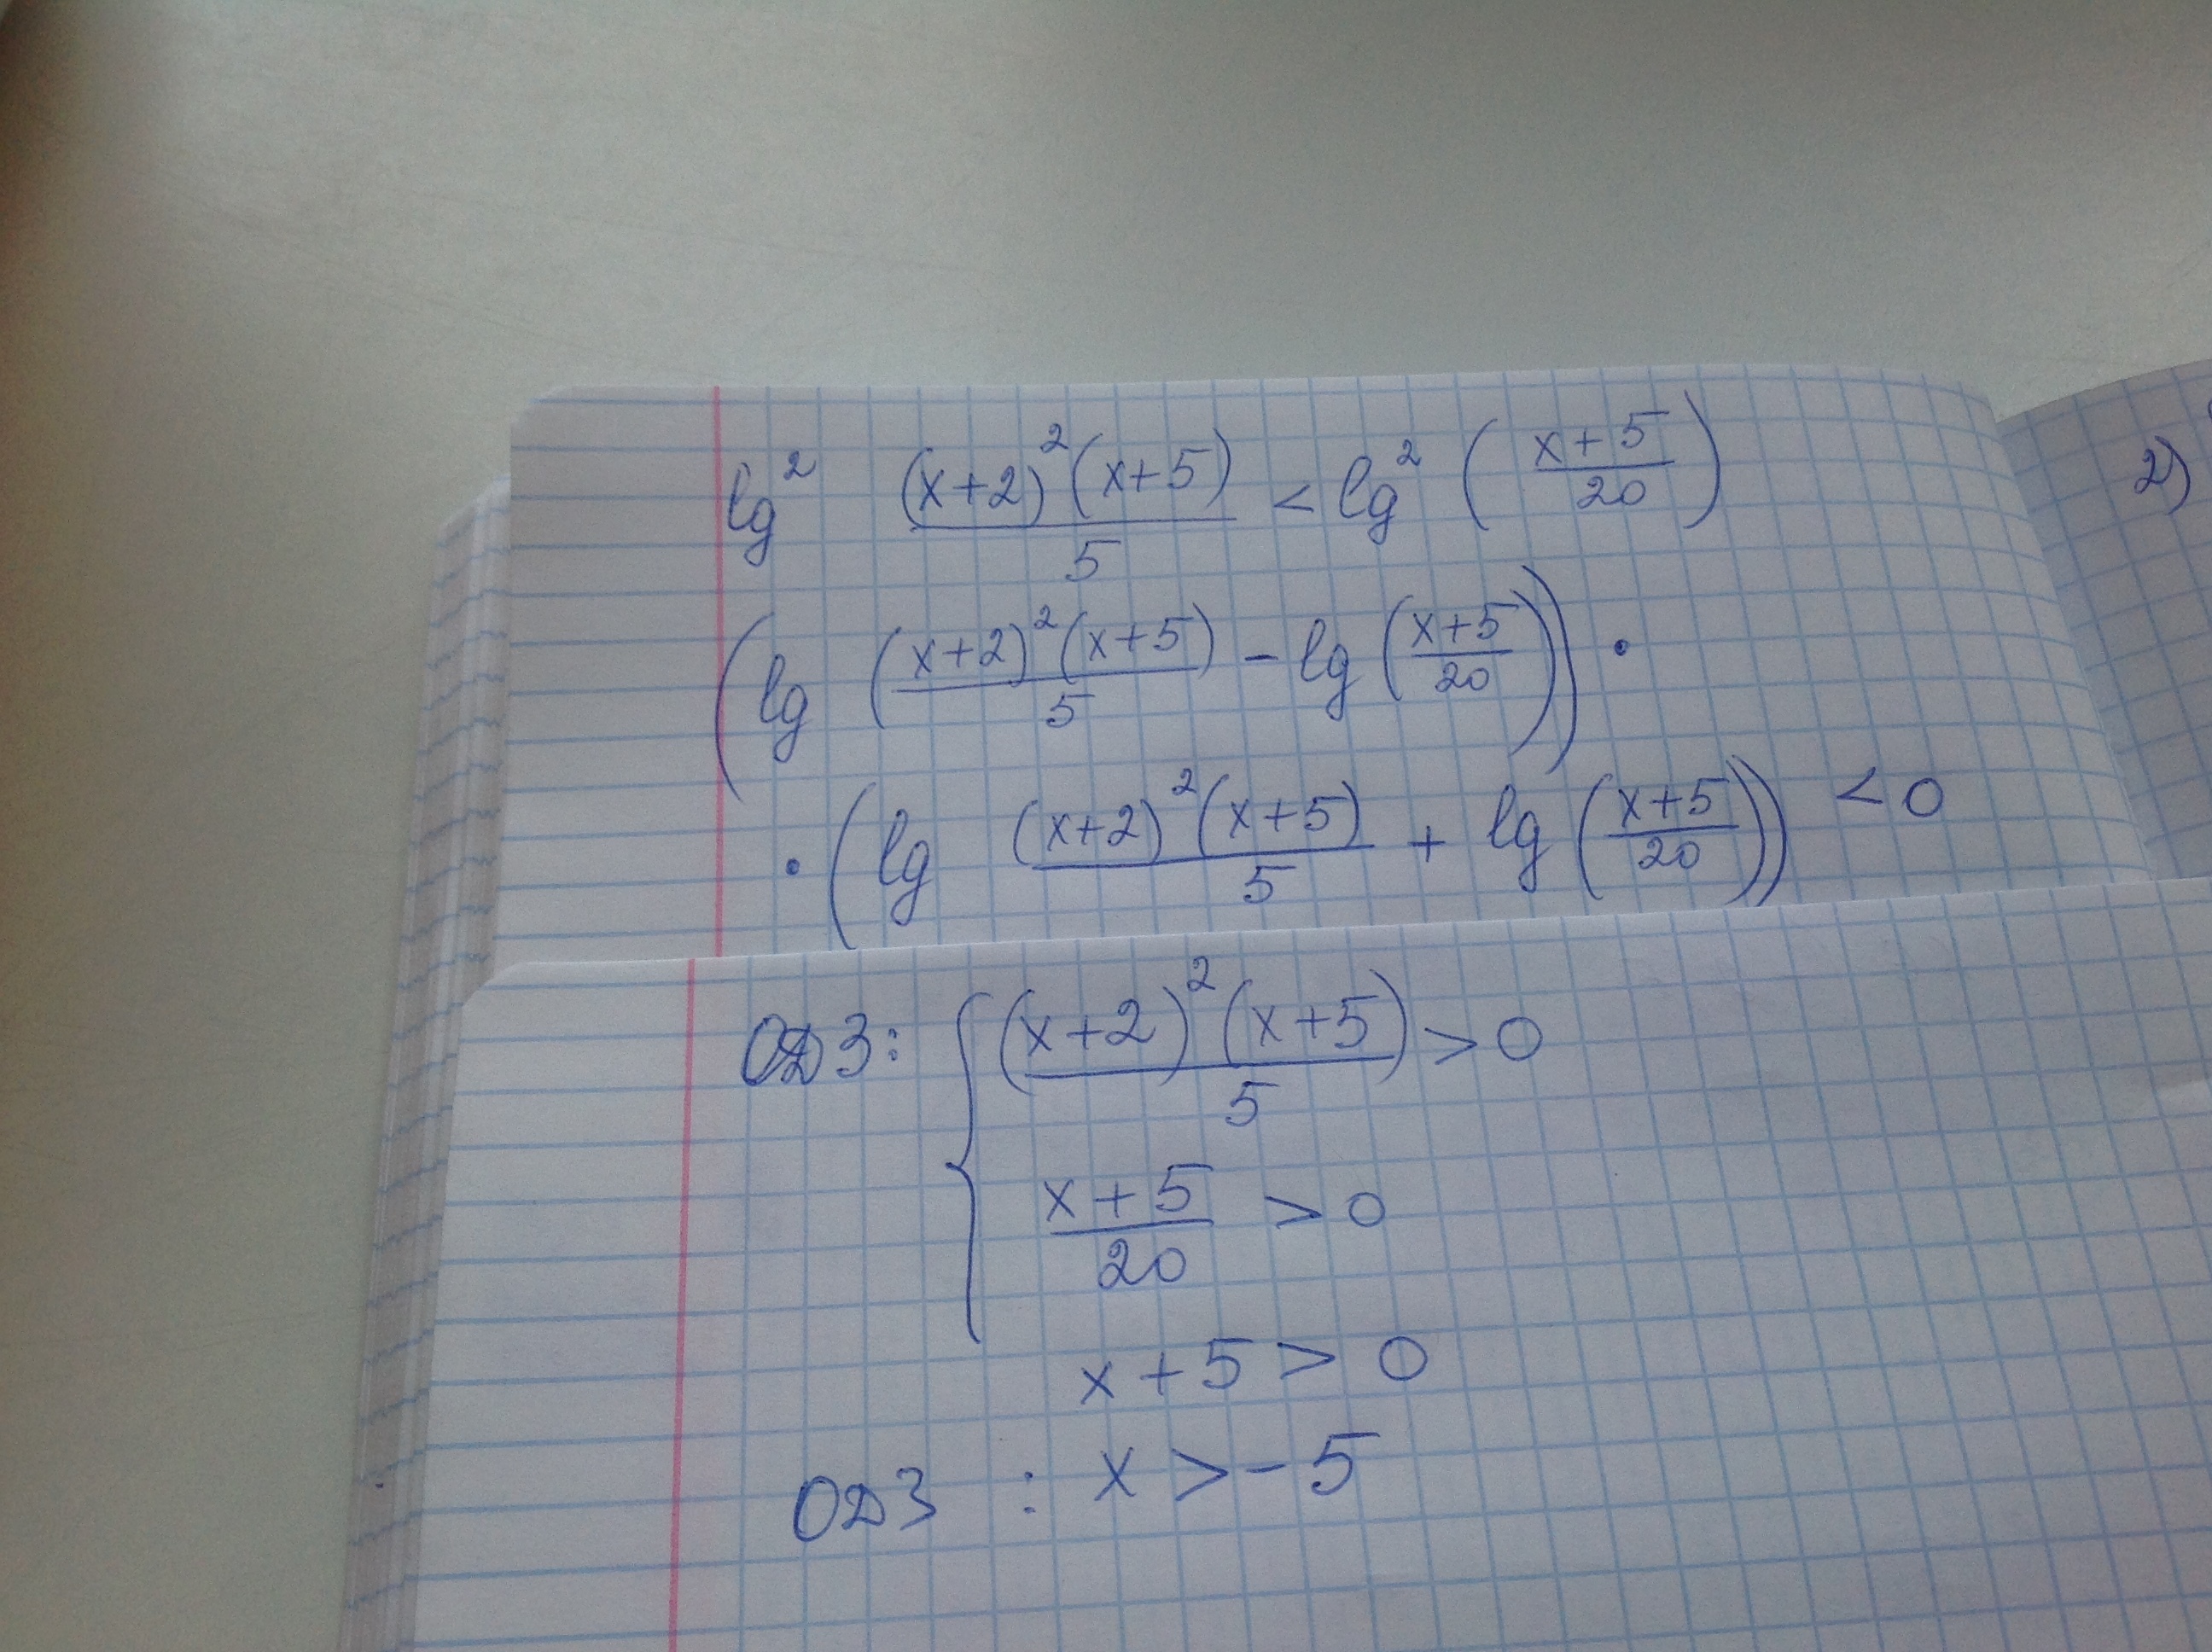 lg² (x+2)²(x+5)/5 < lg² ((x+5)/20)
2)
(lg ((x+2)²(x+5)/5 - lg ((x+5)/20)) ·
· (lg (x+2)²(x+5)/5 + lg ((x+5)/20)) < 0
ОДЗ: { (x+2)²(x+5)/5 > 0
(x+5)/20 > 0
x + 5 > 0
ОДЗ : x > -5